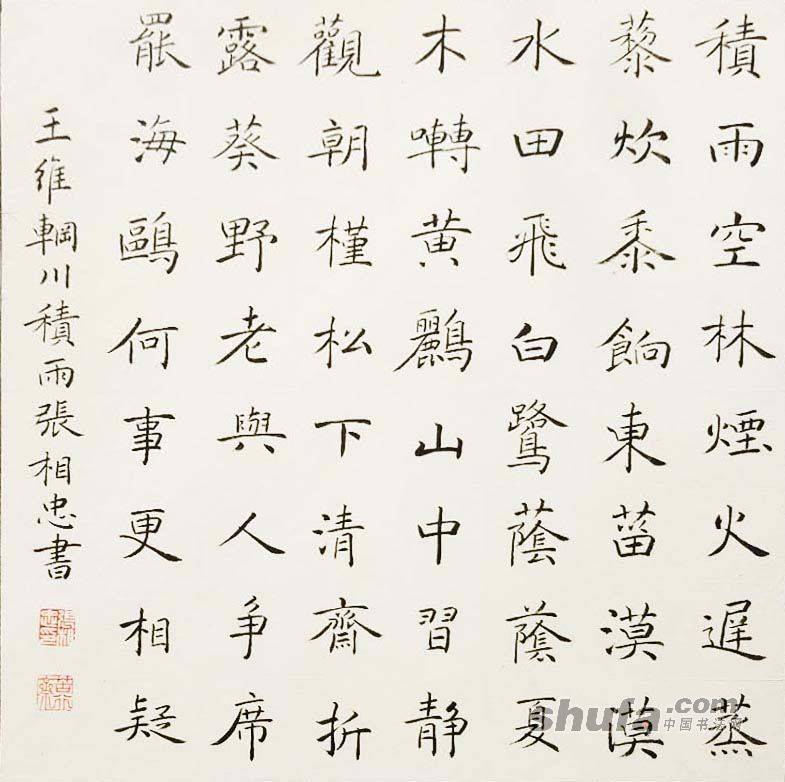 積雨空林煙火遲蒸
藜炊黍餉東菑漠漠
水田飛白鷺蔭蔭夏
木囀黄鸝山中習静
觀朝槿松下清齋折
露葵野老與人争席
罷海鷗何事更相疑
王維輞川積雨張相忠書
shufa.com
中国书法网